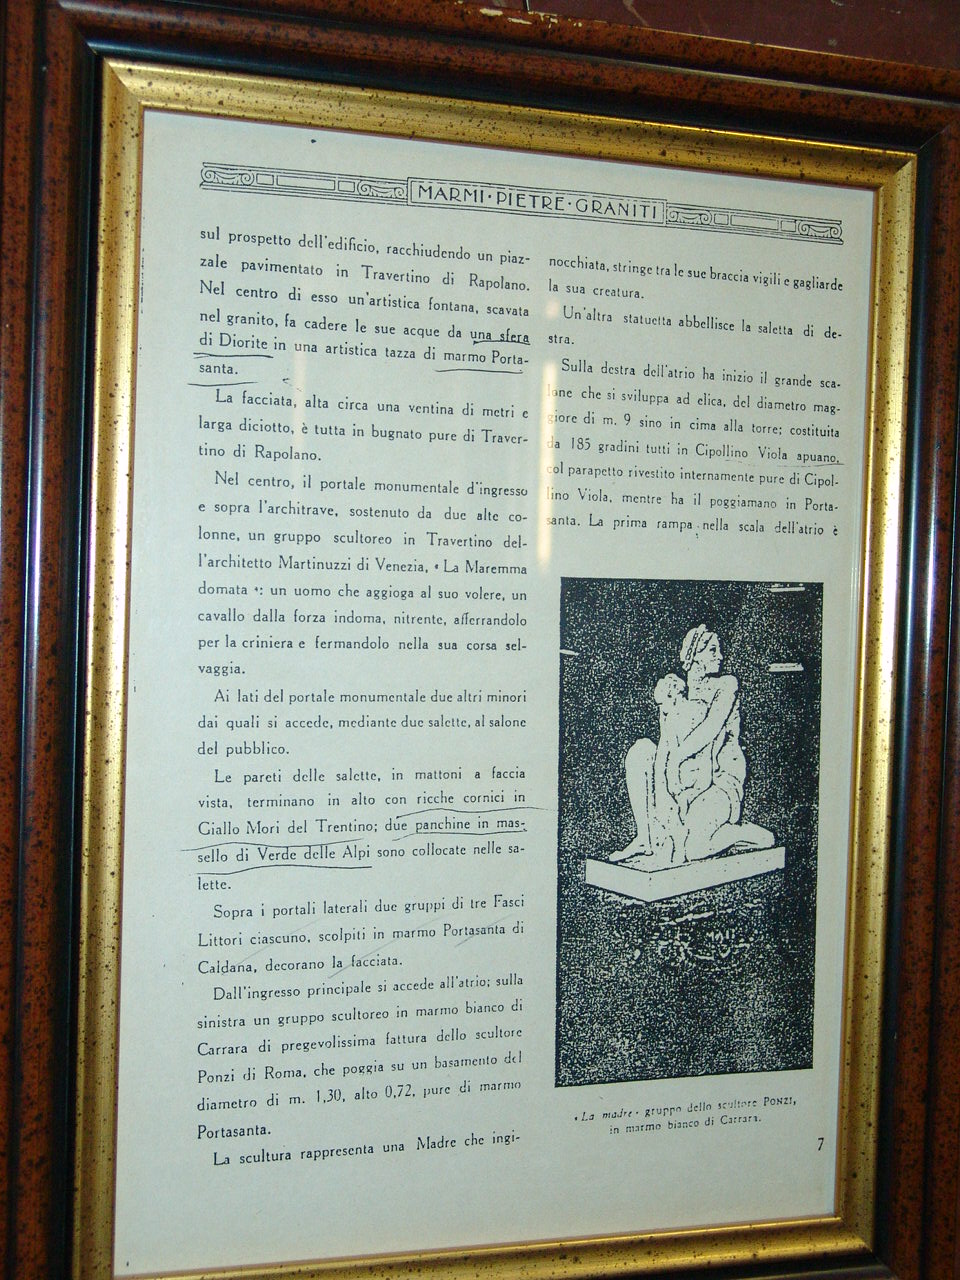 MARMI·PIETRE·GRANITI
sul prospetto dell'edificio, racchiudendo un piaz-
zale pavimentato in Travertino di Rapolano.
Nel centro di esso un'artistica fontana, scavata
nel granito, fa cadere le sue acque da una sfera
di Diorite in una artistica tazza di marmo Porta-
santa.
La facciata, alta circa una ventina di metri e
larga diciotto, è tutta in bugnato pure di Traver-
tino di Rapolano.
Nel centro, il portale monumentale d'ingresso
e sopra l'architrave, sostenuto da due alte co-
lonne, un gruppo scultoreo in Travertino del-
l'architetto Martinuzzi di Venezia, « La Maremma
domata »: un uomo che aggioga al suo volere, un
cavallo dalla forza indoma, nitrente, afferrandolo
per la criniera e fermandolo nella sua corsa sel-
vaggia.
Ai lati del portale monumentale due altri minori
dai quali si accede, mediante due salette, al salone
del pubblico.
Le pareti delle salette, in mattoni a faccia
vista, terminano in alto con ricche cornici in
Giallo Mori del Trentino; due panchine in mas-
sello di Verde delle Alpi sono collocate nelle sa-
lette.
Sopra i portali laterali due gruppi di tre Fasci
Littori ciascuno, scolpiti in marmo Portasanta di
Caldana, decorano la facciata.
Dall'ingresso principale si accede all'atrio; sulla
sinistra un gruppo scultoreo in marmo bianco di
Carrara di pregevolissima fattura dello scultore
Ponzi di Roma, che poggia su un basamento del
diametro di m. 1,30, alto 0,72, pure di marmo
Portasanta.
La scultura rappresenta una Madre che ingi-
nocchiata, stringe tra le sue braccia vigili e gagliarde
la sua creatura.
Un'altra statuetta abbellisce la saletta di de-
stra.
Sulla destra dell'atrio ha inizio il grande sca-
lone che si sviluppa ad elica, del diametro mag-
giore di m. 9 sino in cima alla torre; costituita
da 185 gradini tutti in Cipollino Viola apuano,
col parapetto rivestito internamente pure di Cipol-
lino Viola, mentre ha il poggiamano in Porta-
santa. La prima rampa nella scala dell'atrio è
« La madre » gruppo dello scultore PONZI,
in marmo bianco di Carrara.
7